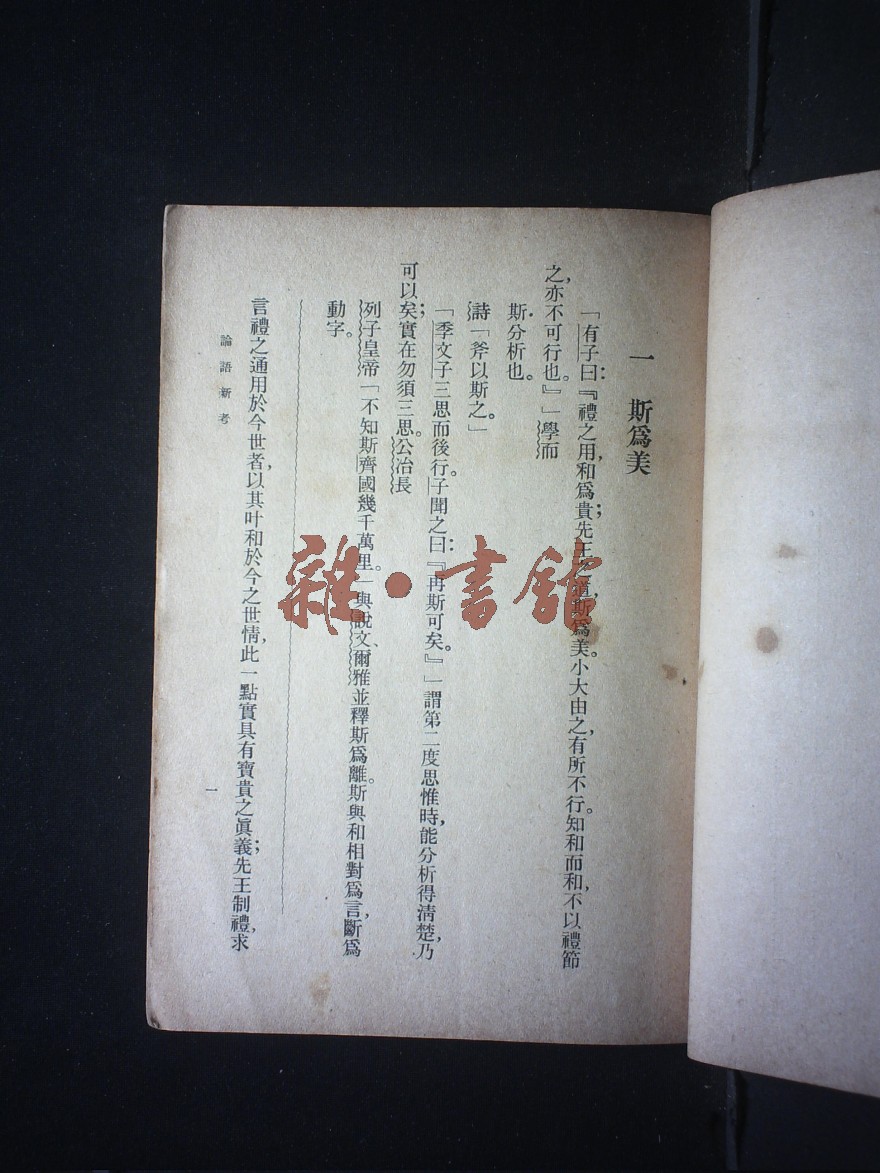 一　斯爲美
「有子曰：『禮之用，和爲貴；先王之道，斯爲美。小大由之，有所不行。知和而和，不以禮節
之，亦不可行也。』」學而
斯分析也。
詩「斧以斯之。」
「季文子三思而後行。子聞之曰：『再斯可矣。』」謂第二度思惟時，能分析得淸楚，乃
可以矣；實在勿須三思。公冶長
列子皇帝「不知斯齊國幾千萬里。」與說文、爾雅並釋斯爲離。斯與和相對爲言，斷爲
動字。
言禮之通用於今世者，以其叶和於今之世情，此一點實具有寶貴之眞義；先王制禮，求
論語新考
一
雜·書館